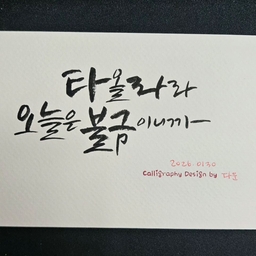 타올라라
오늘은 불금이니까
2026.01.30
Calligraphy Design by 다온